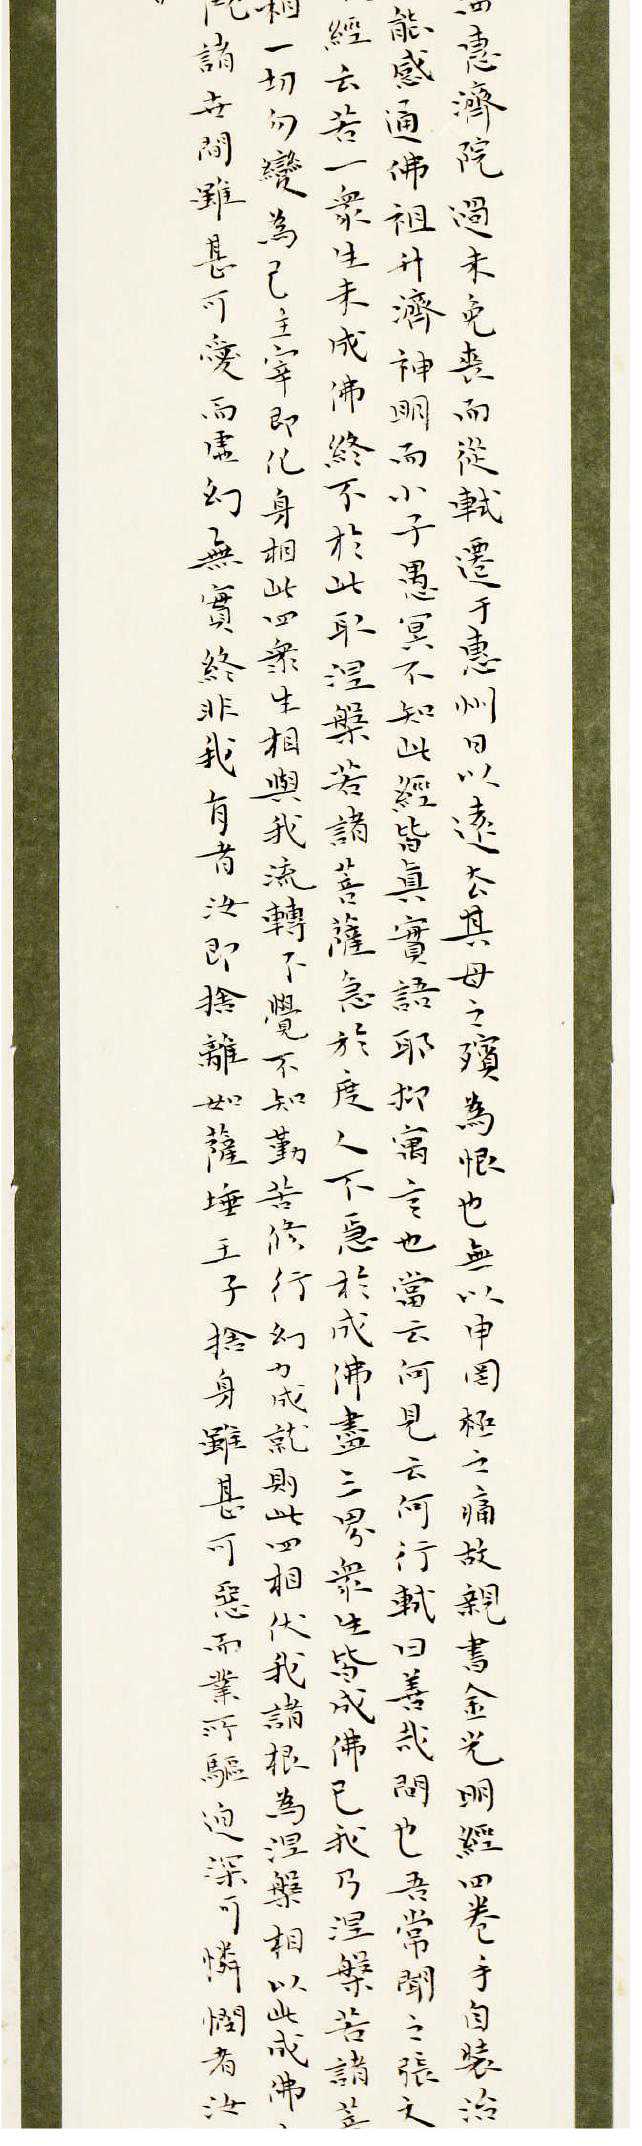 惠濟院過未免喪而從軾遷于惠州日以遠去其母之殯為恨也無以申罔極之痛故親書金光明經四卷手自裝治
能感通佛祖升濟神明而小子愚冥不知此經皆真實語耶抑寓言也當云何見云何行軾曰善哉問也吾常聞之張文
經云若一眾生未成佛終不於此取涅槃若諸菩薩急於度人不急於成佛盡三界眾生皆成佛已我乃涅槃若諸菩
相一切勿變為己主宰即化身相此四眾生相與我流轉不覺不知勤苦修行幻力成就則此四相伏我諸根為涅槃相以此成佛
陀諸世間雖甚可愛而虛幻無實終非我有者汝即捨離如薩埵王子捨身雖甚可惡而業所驅迫深可憐憫者汝